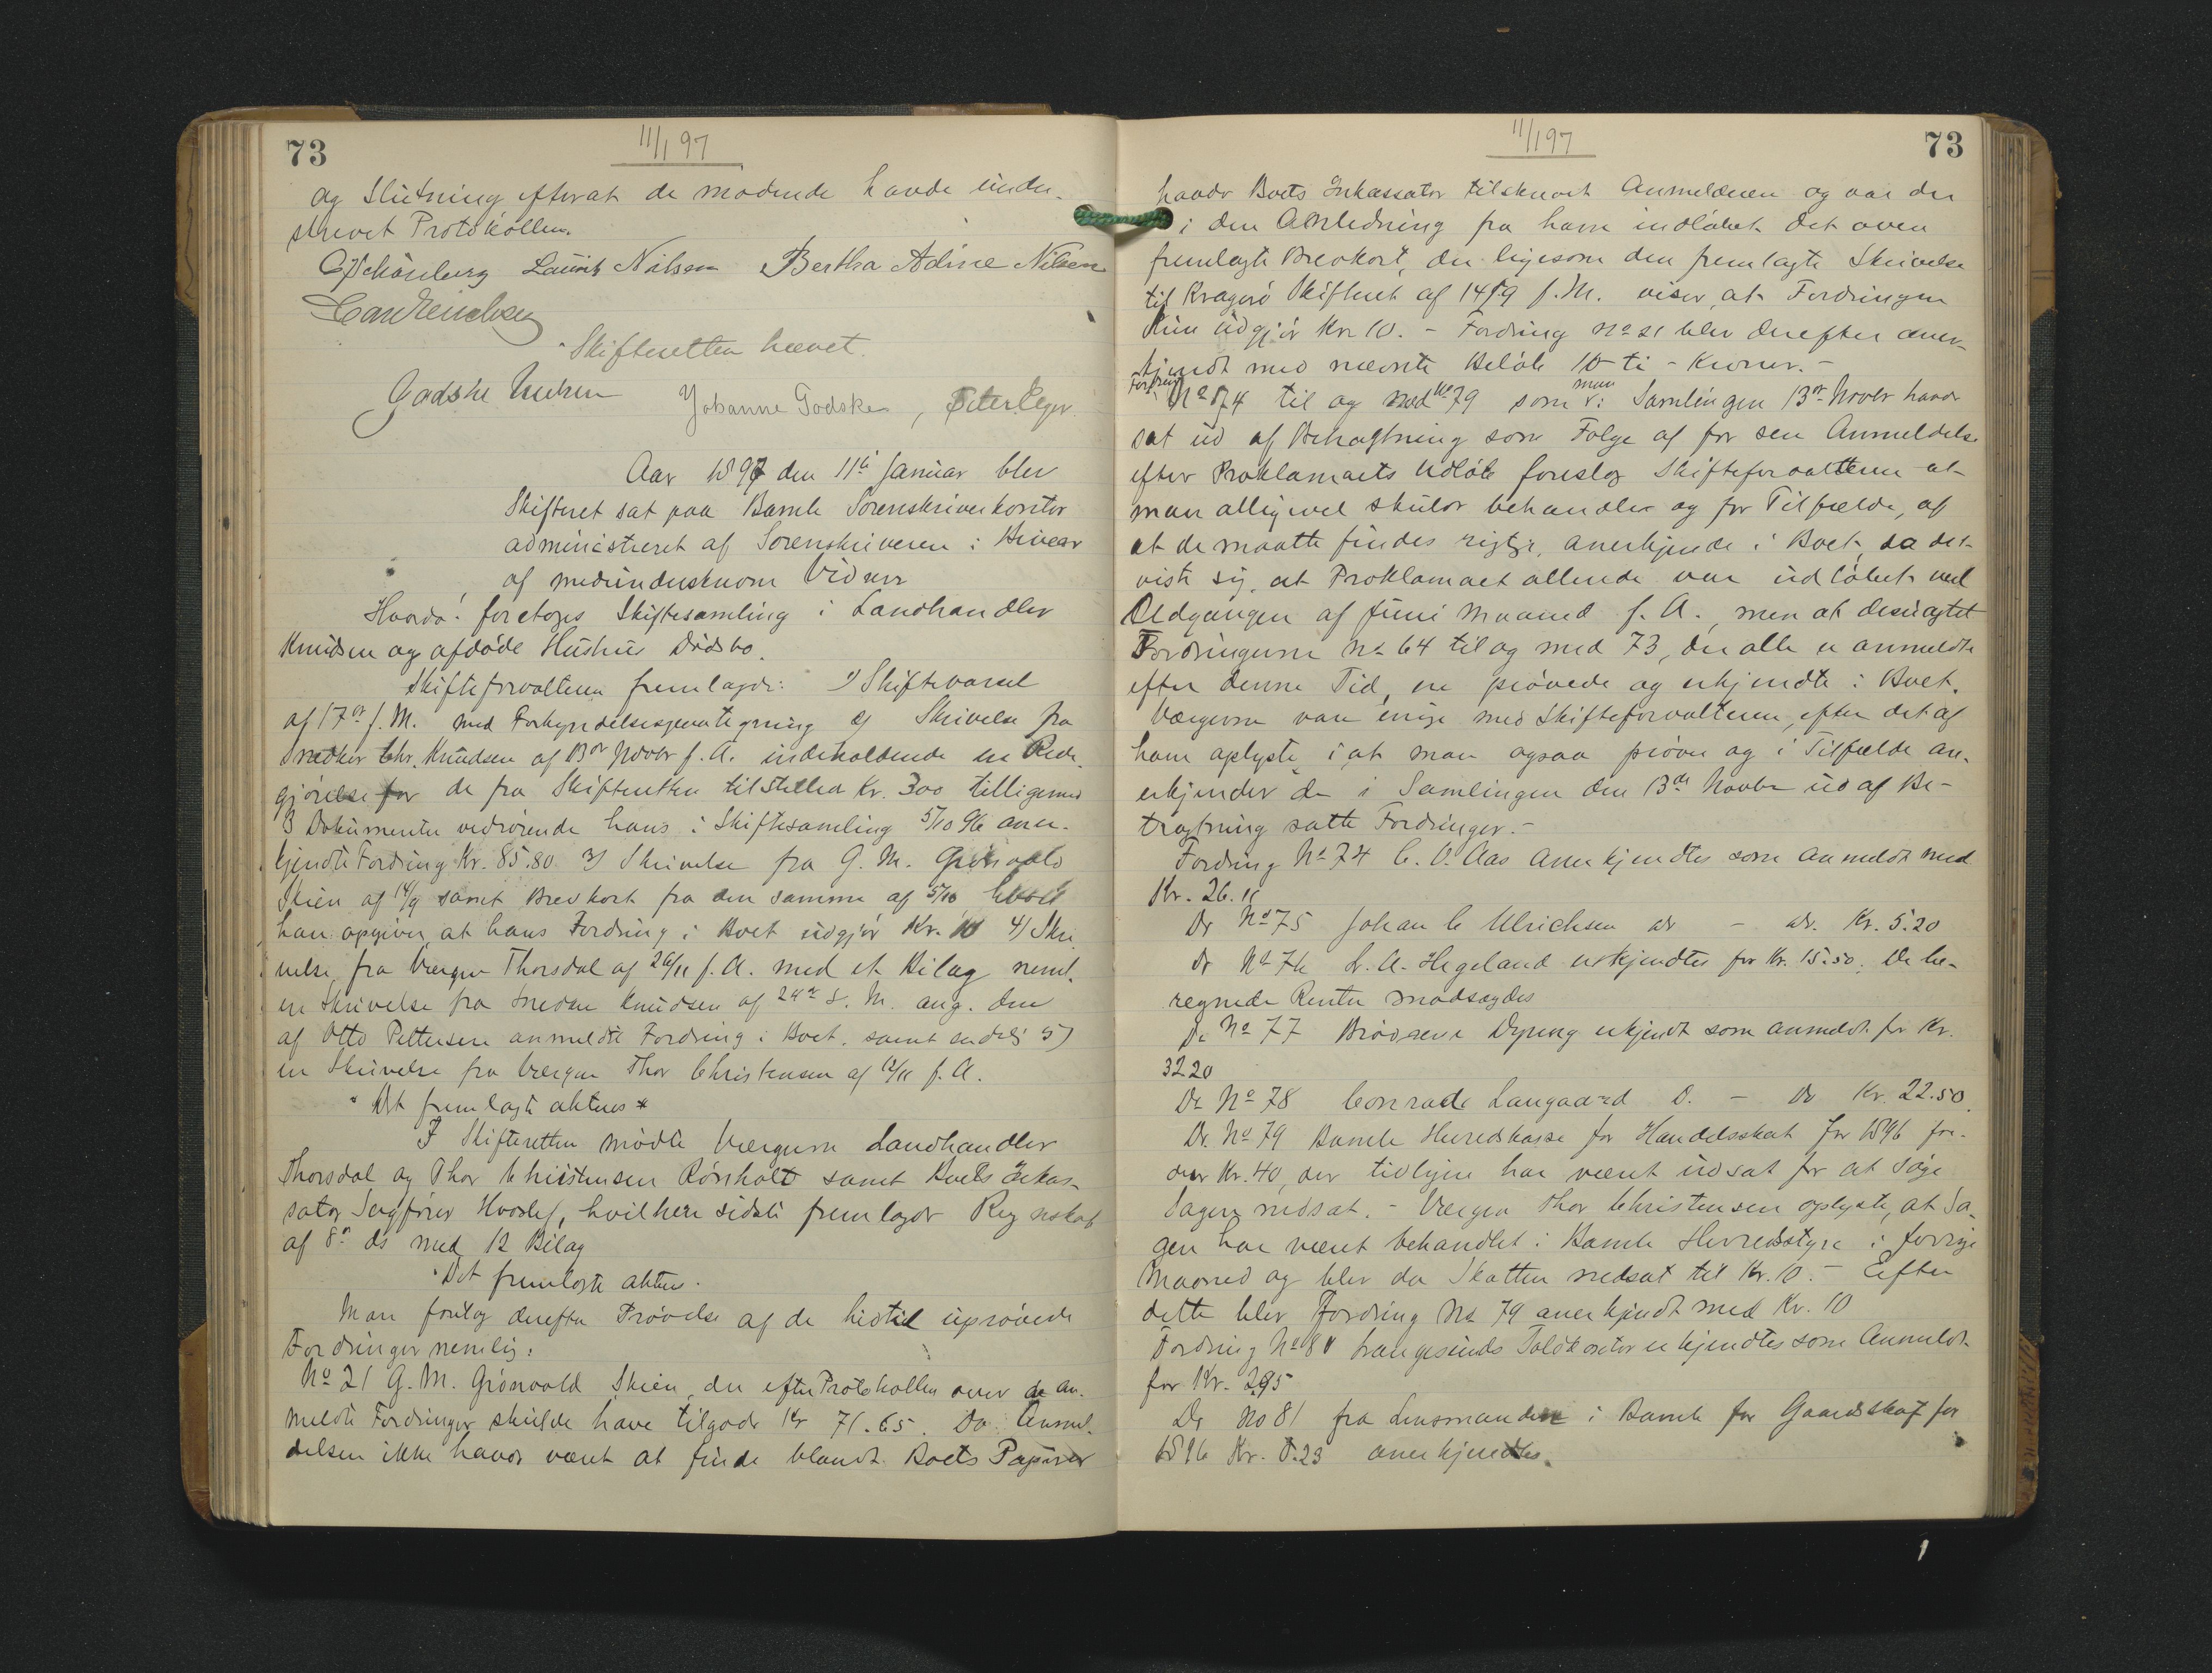 73
11/1 97
og Slutning efterat de mødende havde under-
skrevet Protokollen.
Schönberg Laurits Nilsen Bertha Adine Nilsen
Skifteretten hævet.
Godske Johanne Godske, Peter
Aar 1897 den 11te Januar blev
Skifteret sat paa Bamle Sorenskriverkontor
administreret af Sorenskriveren i Nærvær
af medunderskrevne Vidner
Hvorda: foretoges Skiftesamling i Landhandler
Knudsen og afdøde Hustrus Dødsbo.
Skifteforvalteren fremlagde: 1) Skiftevarsel
af 17de f. M. med Forkyndelsespaategning 2) Skrivelse fra
Snedker Chr. Knudsen af 13de Novbr f. A. indeholdende en Rede-
gjørelse for de fra Skifteretten tilstillea Kr. 300 tilligemed
3 Dokumenter vedrørende hans i Skiftesamling 5/10 96 aner-
kjendte Fordring Kr. 85.80. 3) Skrivelse fra G. M. Grønvold
Skien af 14/9 samt Brevkort fra den samme af 5/10 hvori
han opgiver, at hans Fordring i Boet udgjør Kr. 10 4) Skri-
velse fra Værgen Thorsdal af 26/11 f. A. med et Bilag neml.
en Skrivelse fra Snedker Knudsen af 24de s. M. ang. den
af Otto Pettersen anmeldte Fordring i Boet. samt endelig 5)
en Skrivelse fra Værgen Thor Christensen af 12/11 f. A.
Det fremlagte aktes
I Skifteretten mødte Værgerne Landhandler
Thorsdal og Thor Christensen Rønholt samt Boets Inkas-
sator Sagfører Hvoslef, hvilken sidste fremlagde Regnskab
af 8de ds med 12 Bilag
Det fremlagte aktes.
Man foretog derefter Prøvelse af de hidtil uprøvede
Fordringer nemlig:
No 21 G. M. Grønvold Skien, der efter Protokollen over de an-
meldte Fordringer skulde have tilgode Kr 71.65. Da Anmel-
delsen ikke havde været at finde blandt Boets Papirer
11/1 97
73
havde Boets Inkassator tilskrevet Anmelderen og var der
i den Anledning fra ham indløbet det oven
fremlagte Brevkort, der ligesom den fremlagte Skrivelse
til Kragerø Skifteret af 14/9 f. M. viser, at Fordringen
kun udgjør Kr. 10. - Fordring No 21 blev derefter aner-
kjendt med nævnte Beløb 10 - ti - Kroner. -
Fordring No 74 til og med No 79 som man i Samlingen 13de Novbr havde
sat ud af Betragtning som Følge af for sen Anmeldelse
efter Proklamaets Udløb foreslog Skifteforvalteren at
man alligevel skulde behandle og for Tilfælde, af
at de maatte findes rigtige, anerkjende i Boet, da det
viste sig, at Proklamaet allerede var udløbet ved
Udgangen af Juni Maaned f. A., men at desuagtet
Fordringerne No 64 til og med 73, der alle er anmeldte
efter denne Tid, er prøvede og erkjendte i Boet.
Værgerne vare enige med Skifteforvalteren, efter det af
ham oplyste, i at man ogsaa prøver og i Tilfælde an-
erkjender de i Samlingen den 13de Novbr ud af Be-
tragtning satte Fordringer. -
Fordring No 74 C. O. Aas anerkjendtes som anmeldt med
Kr. 26.11
Do No 75 Johan C Ulrichsen do - do. Kr. 5.20
do No 76 L. A. Hegeland erkjendtes for Kr. 15.50. De be-
regnede Renter modsagdes
Do No 77 Brødrene Dyring erkjendt som anmeldt for Kr.
32 20
Do No 78 Conrad Langaard D. - Do Kr. 22.50.
Do. No 79 Bamle Herredskasse for Handelsskat for 1896 for-
drer Kr. 40, der tidligere har været udsat for at søge
Sagen nedsat. - Værgen Thor Christensen oplyste, at Sa-
gen har været behandlet i Bamle Herredsstyre i forrige
Maaned og blev da Skatten nedsat til Kr. 10. - Efter
dette blev Fordring No 79 anerkjendt med Kr. 10
Fordring No 80 Langesunds Toldkontor erkjendtes som Anmeldt
for Kr. 2,95
Do No 81 fra Lensmanden i Bamle for Gaardsskat for
1896 Kr. 8.23 anerkjendtes.